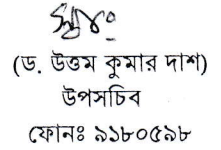 স্বাঃ
(ড. উত্তম কুমার দাশ)
উপসচিব
ফোনঃ ৯১৮০৫৯৮